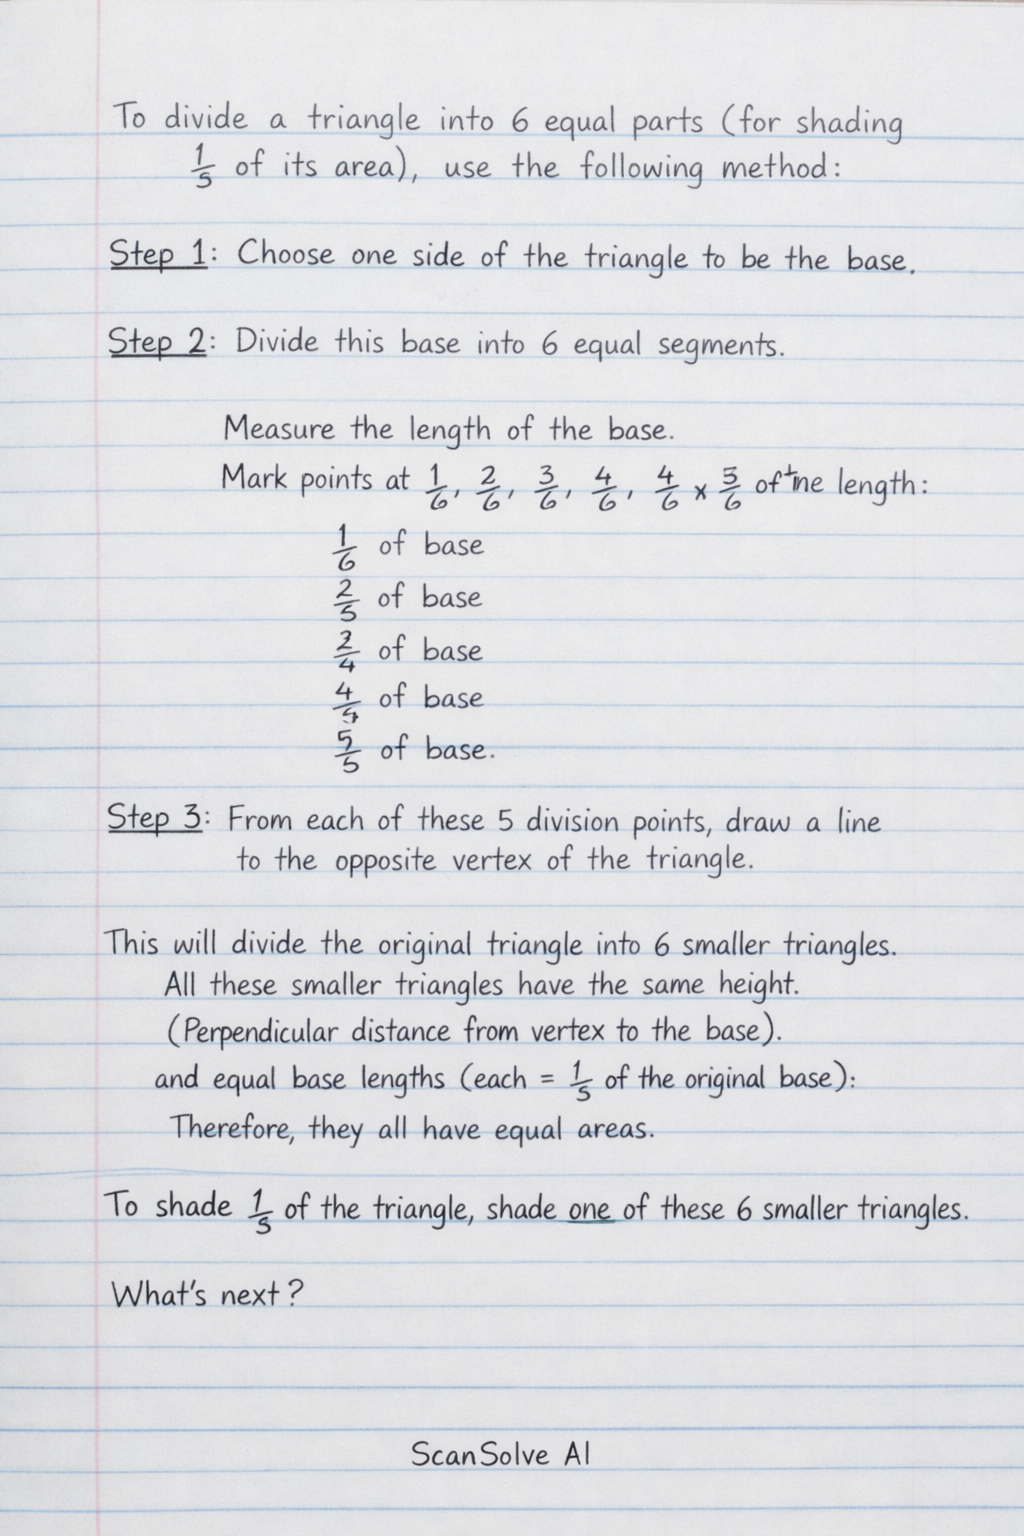 To divide a triangle into 6 equal parts (for shading
1/5 of its area), use the following method:
Step 1: Choose one side of the triangle to be the base.
Step 2: Divide this base into 6 equal segments.
Measure the length of the base.
Mark points at 1/6, 2/6, 3/6, 4/6, 4/6 x 5/6 of the length:
1/6 of base
2/5 of base
2/4 of base
4/5 of base
5/5 of base.
Step 3: From each of these 5 division points, draw a line
to the opposite vertex of the triangle.
This will divide the original triangle into 6 smaller triangles.
All these smaller triangles have the same height.
(Perpendicular distance from vertex to the base).
and equal base lengths (each = 1/5 of the original base):
Therefore, they all have equal areas.
To shade 1/5 of the triangle, shade one of these 6 smaller triangles.
What's next?
ScanSolve AI